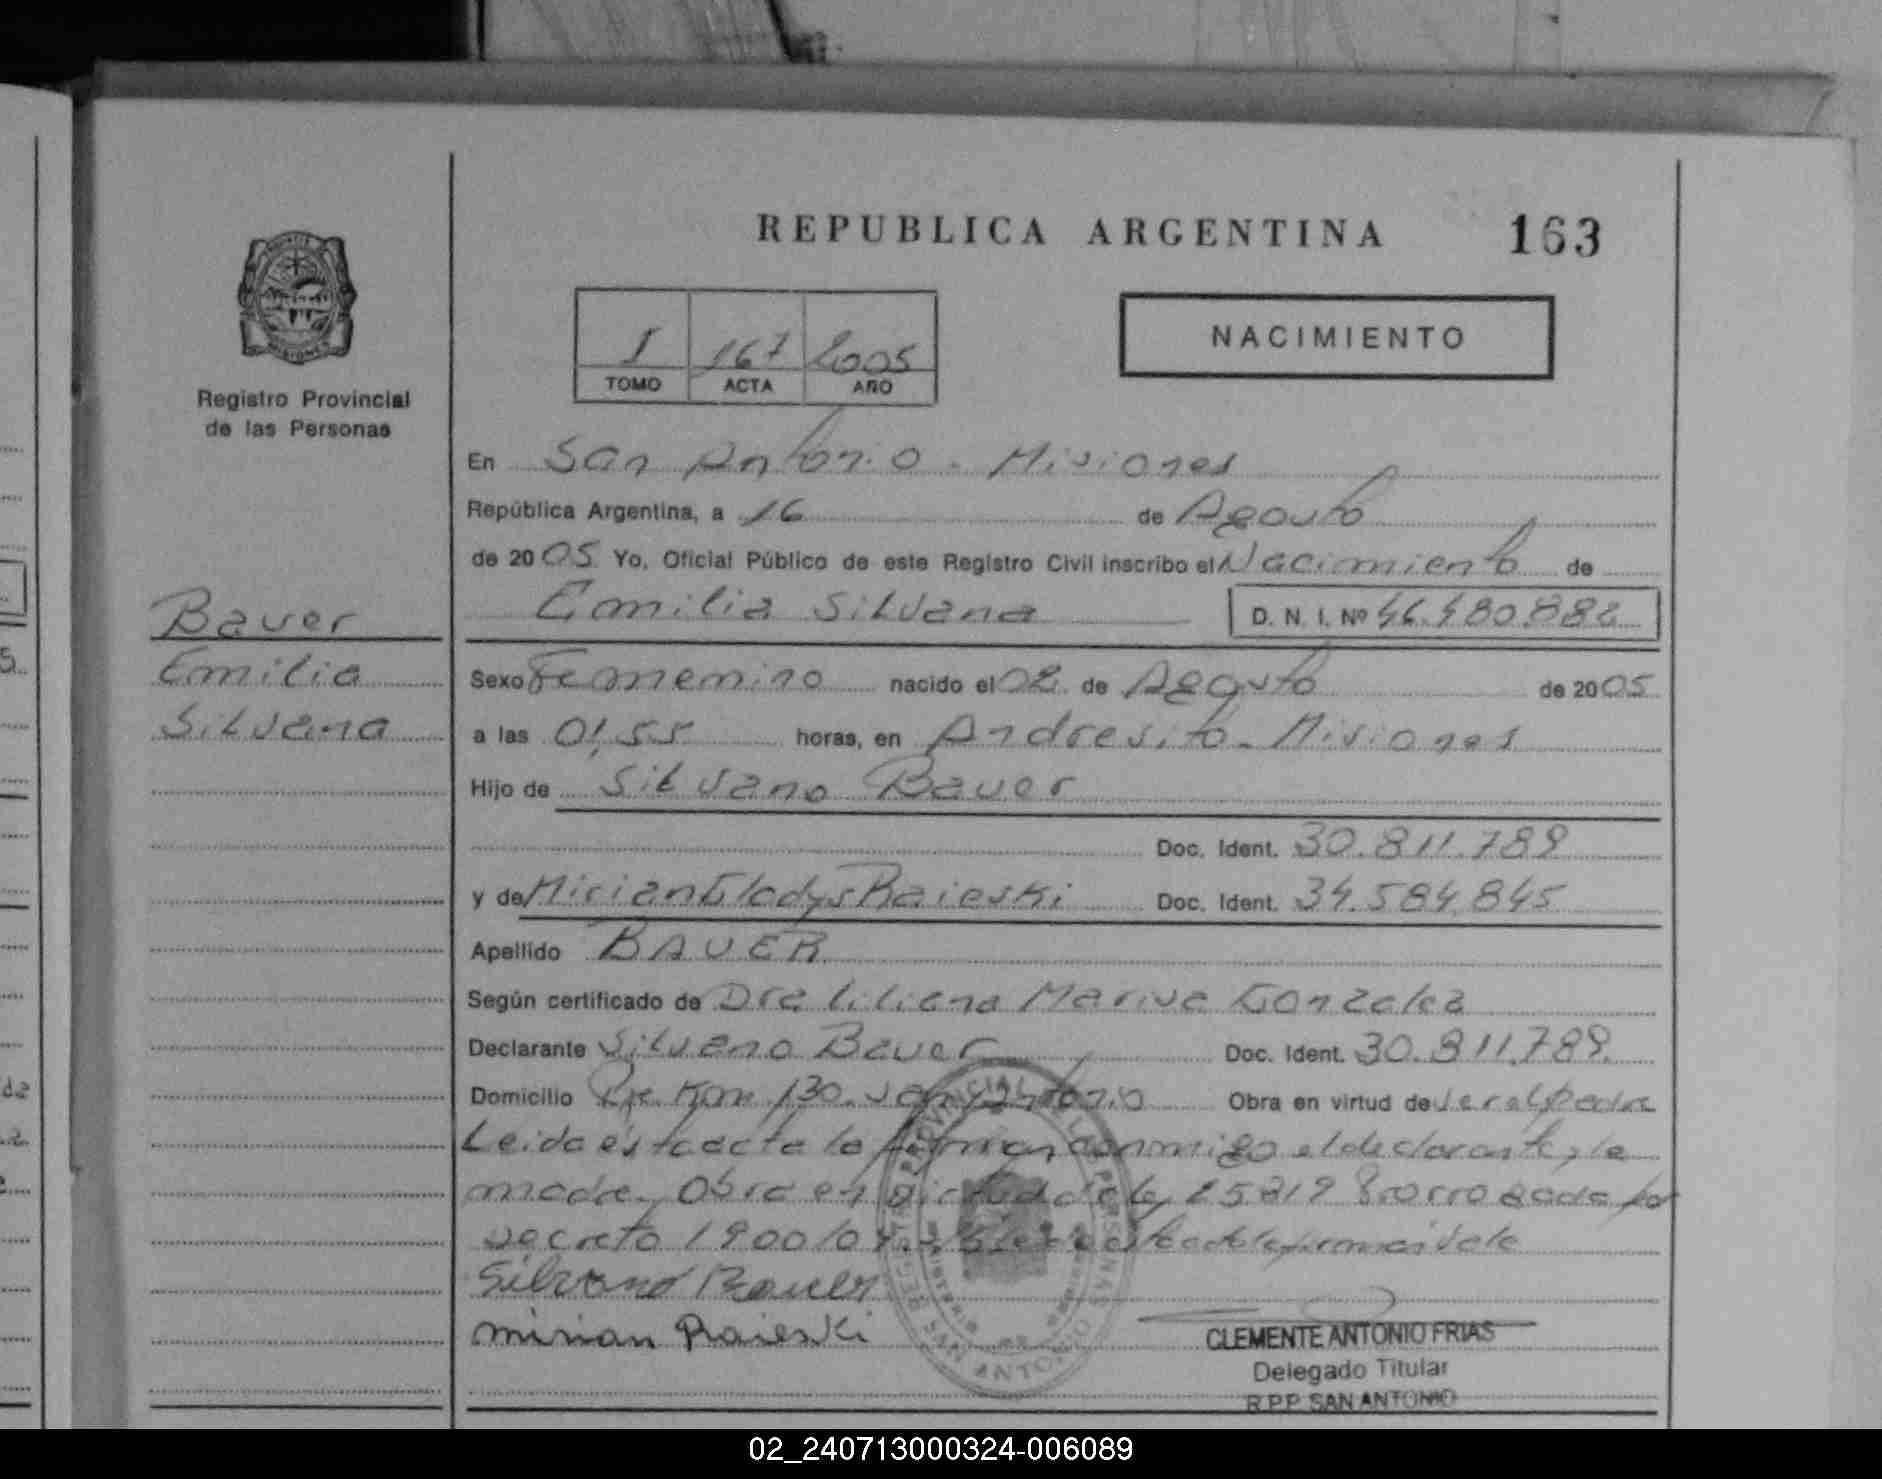 REPUBLICA ARGENTINA 163
I 167 2005
TOMO ACTA AÑO
NACIMIENTO
MISIONES
Registro Provincial
de las Personas
Bauer
Emilia
Silvana
En San Antonio - Misiones
República Argentina, a 16 de Agosto
de 2005 Yo, Oficial Público de este Registro Civil inscribo el Nacimiento de
Emilia Silvana D. N. I. Nº 46.480.882
Sexo Femenino nacido el 02 de Agosto de 2005
a las 01,55 horas, en Andresito - Misiones
Hijo de Silvano Bauer
Doc. Ident. 30.811.789
y de Mirian Gladys Raieski Doc. Ident. 34.584.845
Apellido BAUER
Según certificado de Dra Liliana Marisa Gonzalez
Declarante Silvano Bauer Doc. Ident. 30.811.789.
Domicilio Km 130. San Antonio Obra en virtud de
Leida esta acta la firman conmigo el declarante y la
madre. Obra en virtud de ley 25819 Prorrogada por
Decreto 1900/04.
Silvano Bauer
Mirian Raieski
REGISTRO PROVINCIAL DE LAS PERSONAS
SAN ANTONIO
CLEMENTE ANTONIO FRIAS
Delegado Titular
R.P.P. SAN ANTONIO
02_240713000324-006089